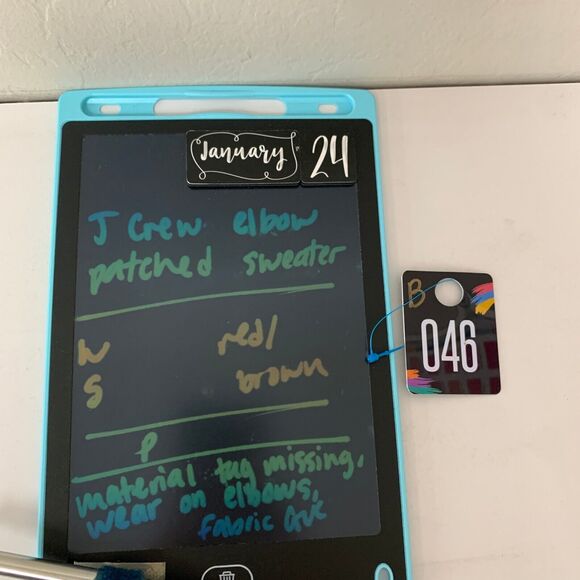 January 24
J Crew elbow
patched sweater
W red/
S brown
P
material tag missing,
wear on elbows,
fabric
B
046